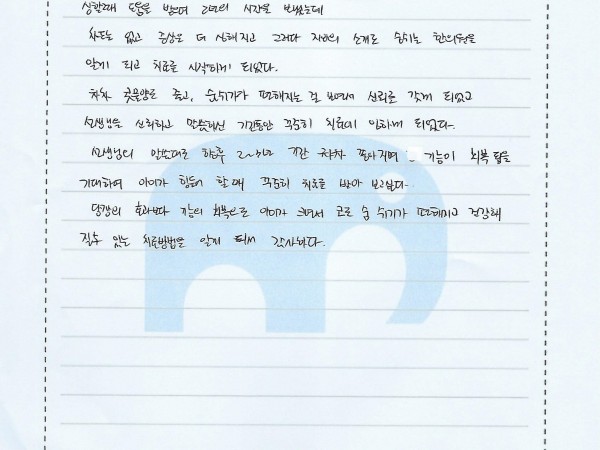 심할때 도움을 받으며 2년의 시간을 보냈는데
차도는 없고 증상은 더 심해지고 그러다 지인의 소개로 숨쉬는 한의원을
알게 되고 치료를 시작하게 되었다.
차차 콧물양도 줄고, 숨쉬기가 편해지는 걸 보면서 신뢰를 갖게 되었고
선생님을 신뢰하고 말씀하신 기간동안 꾸준히 치료에 임하게 되었다.
선생님의 말씀대로 향후 2~3년 기간 차차 좋아지며 기능이 회복 됨을
기대하며 아이가 힘들어 할 때 꾸준히 치료를 받아 보고싶다.
당장의 효과보다 기능의 회복으로 아이가 크면서 코로 숨 쉬기가 편해지고 건강해
질수 있는 치료방법을 알게 되서 감사하다.